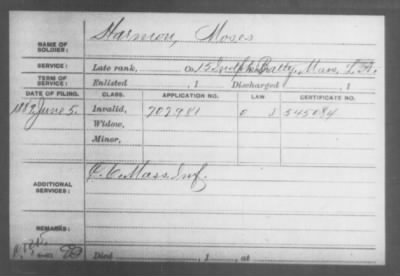 NAME OF SOLDIER: Harmon, Moses
SERVICE: Late rank, Co. 15 Batty, Mass. L. A.
TERM OF SERVICE: Enlisted , 1 Discharged , 1
DATE OF FILING. CLASS. APPLICATION NO. LAW CERTIFICATE NO.
1889 June 5. Invalid, 707981 0 545084
Widow,
Minor,
ADDITIONAL SERVICES: C, 6 Mass Inf.
REMARKS:
Died , 1 , at